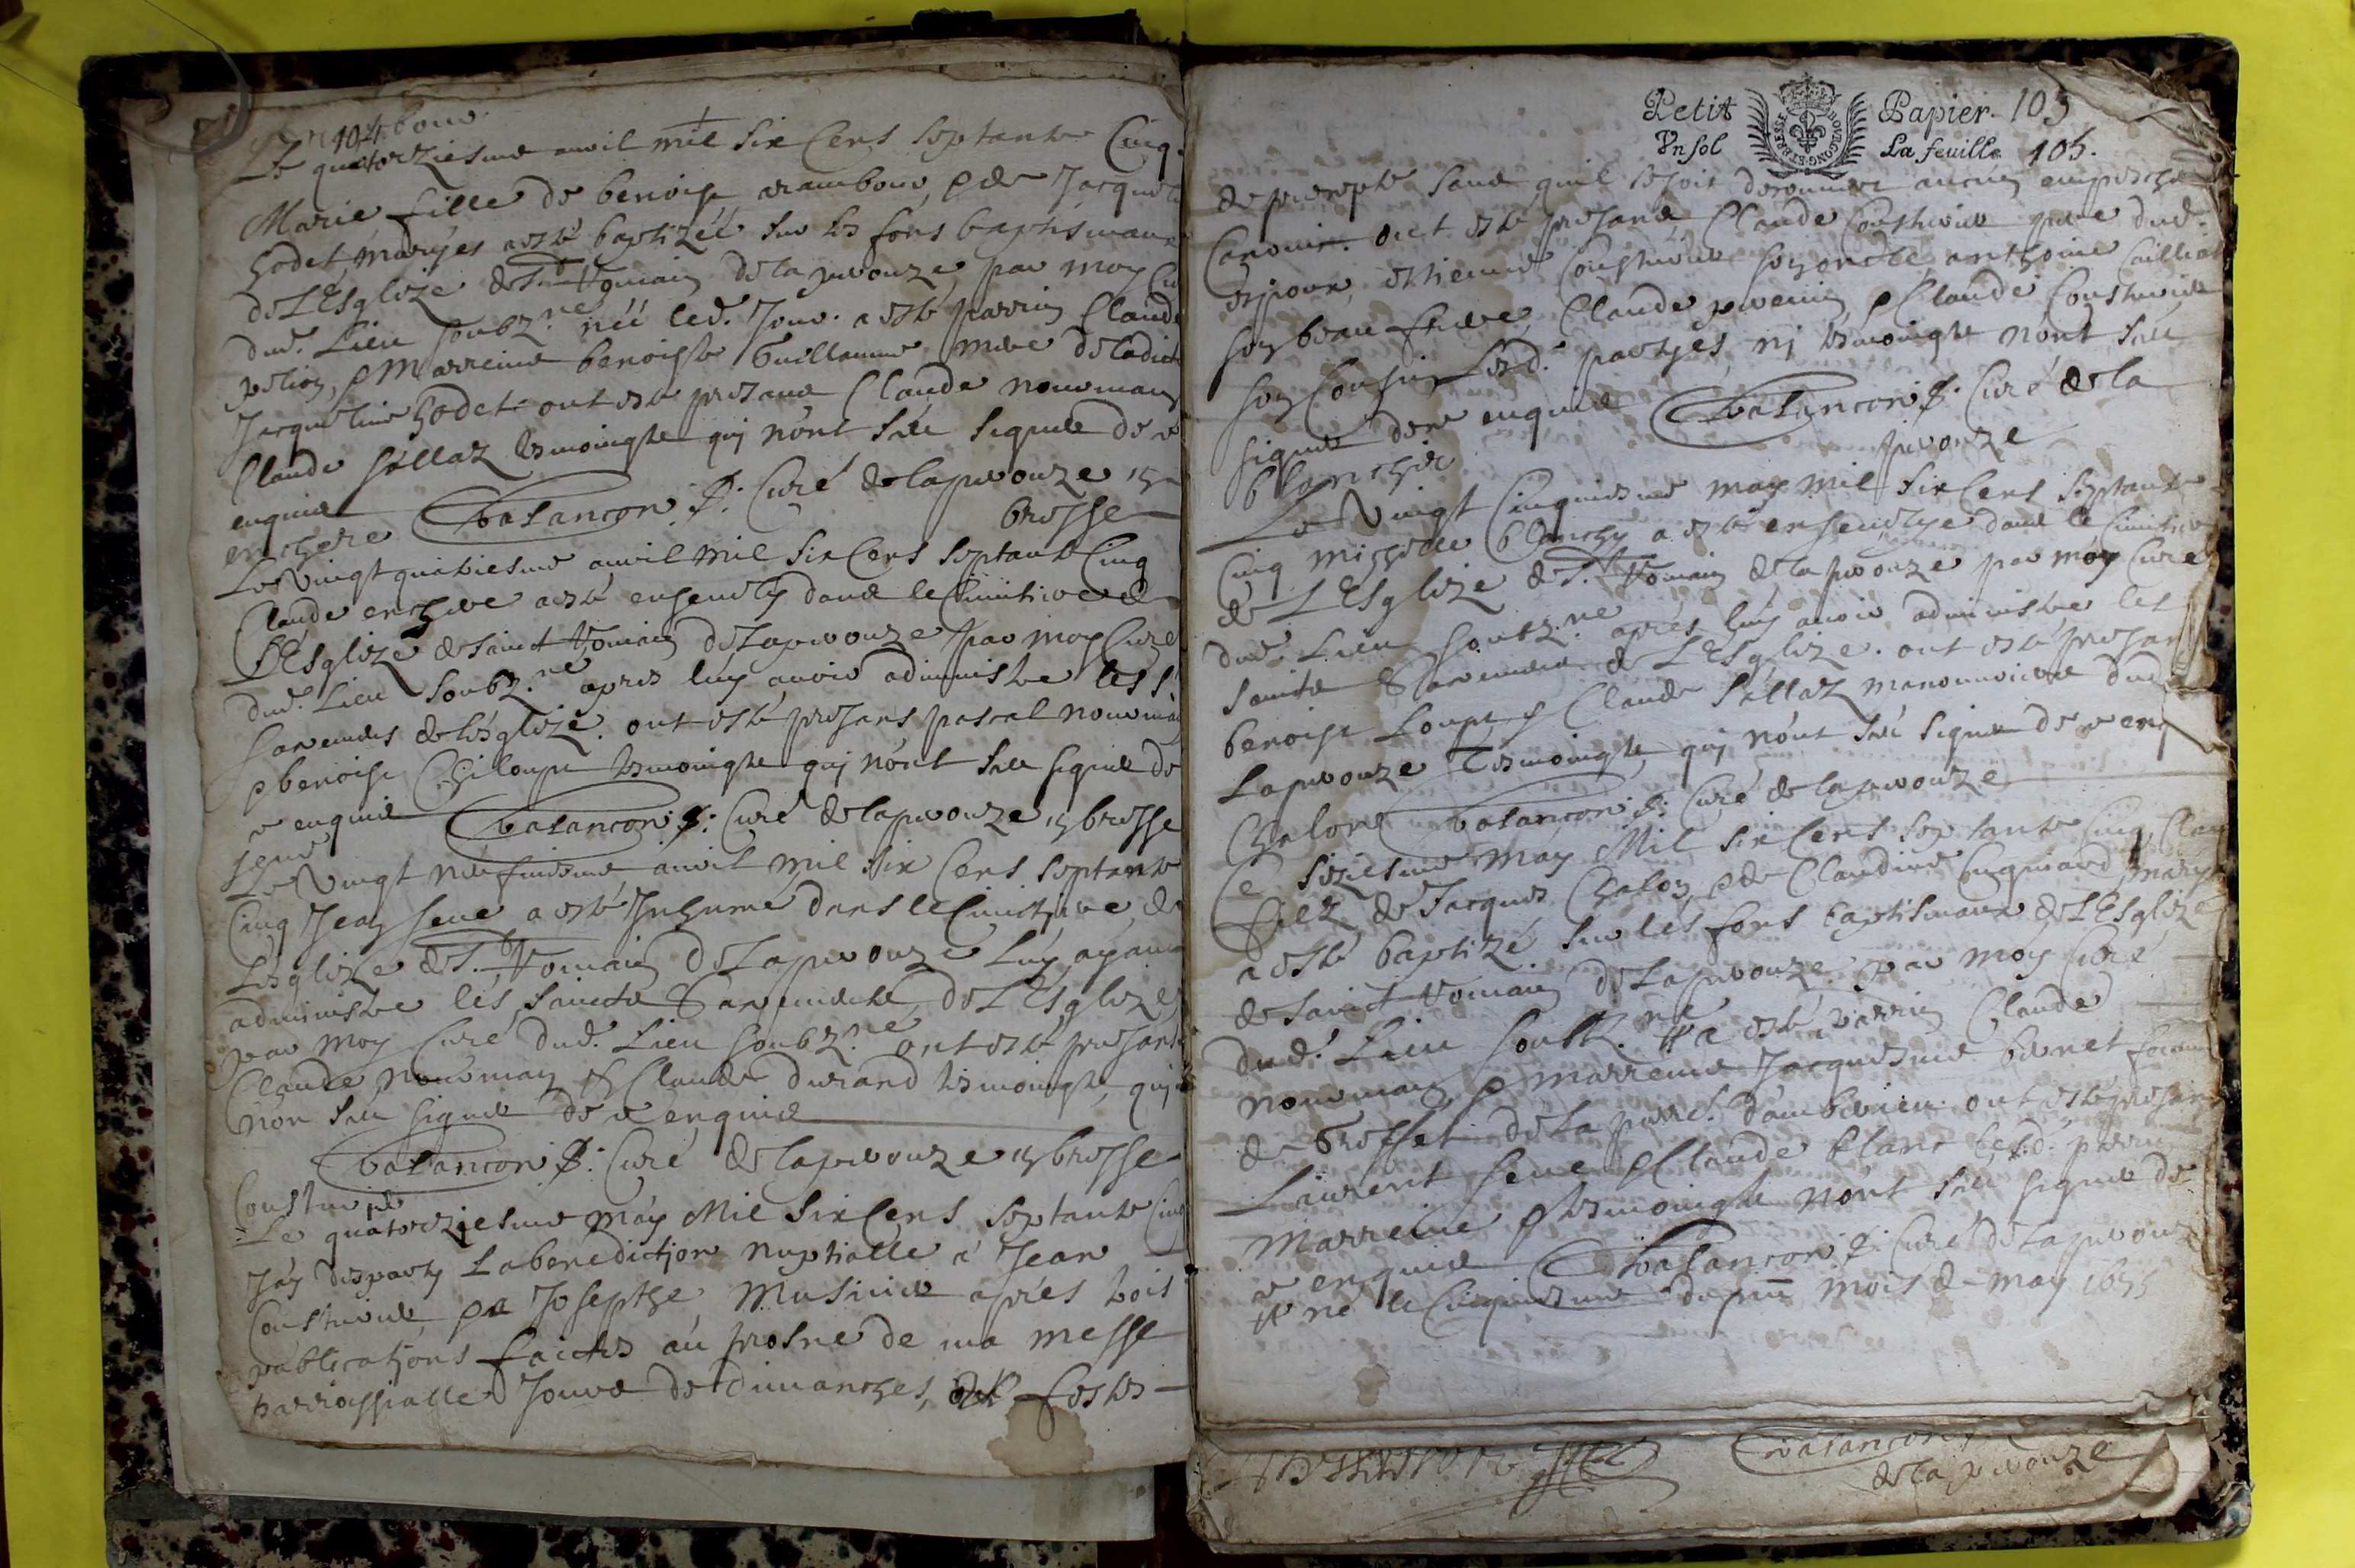 104
Le quatorziesme avril mil six cens septante Cinq
Marie fille de benoist rambour, & de Jacqueli
godet mariyes a esté baptizéé sur les fons baptismaux
de L'Esglize de St Romain de la peyrouze, par moy Cu
dud. Lieu soubz.né néé led. Jour. a esté parrin Claude
& Marreine benoiste Guillaume mere de ladicte
Jacqueline godet. ont esté presans Claude nouvmay
Claude sollaz tesmoingts qui n'ont sceu signer de ce
enquis
enchere Balancon p: Curé de lapeyrouze en
brosse
Le Vingt quatriesme avril mil six Cens septante Cinq
Claude enchere a esté ensevely dans le Cimitiere de
L'Esglize de sainct Romain de Lapeyrouze par moy Curé
dud. Lieu soubz.né apres luy avoir administre les s
sacremens de l'esglize. ont esté presans pascal nouvmay
& benoist Chiloup tesmoingts qui n'ont sceu signer de
ce enquis Balancon p: Curé de lapeyrouze en brosse
seve
Le Vingt neufiesme avril mil six Cens septante
Cinq Jean seve a esté Inhumé dans le Cimitiere de
L'esglize de St. Romain de Lapeyrouze Luy ayant
administre les saincts Sacremens de L'Esglize
par moy Curé dud. Lieu soubz.né ont esté presans
Claude nouvmay & Claude durand tesmoingts, qui
n'on sceu signer de ce enquis
Balancon p: Curé de lapeyrouze en brosse
Cousturier
Le quatorziesme may Mil six Cens septante Cinq
J'ay desparty La benediction nuptialle á Jean
Cousturier, & a Josepthe Musinier aprés trois
publications faictes au prosne de ma messe
parroissialle Jours de dimanches, & festes
Petit Papier. 105
Vn sol La feuille 105.
BRESSE ET BOVRGONG
de precepte sans qu'il se soit descouvert aucun empeschem
Canonic. ont esté presans Claude Cousturier pere dud.
espoux, estienne Cousturier son oncle anthoine Cailliat
son beau frere, Claude & Claude Cousturier
son Cousin Lesd. partyes, ny tesmoingts n'ont sceu
signer de ce enquis Balancon p: Curé de la
peyrouze
blanchy
Le Vingt Cinquiesme may mil six Cens septante
Cinq michelle blanchy a esté ensevelye dans le Cimitiere
de L'Esglize de St. Romain de la peyrouze par moy Curé
dud. Lieu soubz.né aprés luy avoir administre les
saincts Sacremens de L'Esglize. ont esté presans
benoist Loup & Claude sollaz manouvrier dud
Lapeyrouze Tesmoingts qui n'ont sceu signer de ce enq
Chalon Balancon p: Curé de lapeyrouze
Ce seziesme may Mil six Cens septante Cinq, Clau
filz de Jacques Chalon, & de Claudine mary
a esté baptizé sur les fons baptismaux de L'Esglize
de sainct Romain de Lapeyrouze par moy Curé
dud. Lieu soubz.né # a esté parrin Claude
nouvmay & marreine Jacquesme femme
de Grosset de la parr. d'amberieu. ont esté presans
Laurent seve & Claude blanc Lesd. parrin
Marreine & tesmoingts n'ont sceu signer de
ce enquis Balancon p: Curé de Lapeyrouze
# né le Cinquiesme du pnt mois de may 1675
Balancon
de la peyrouze